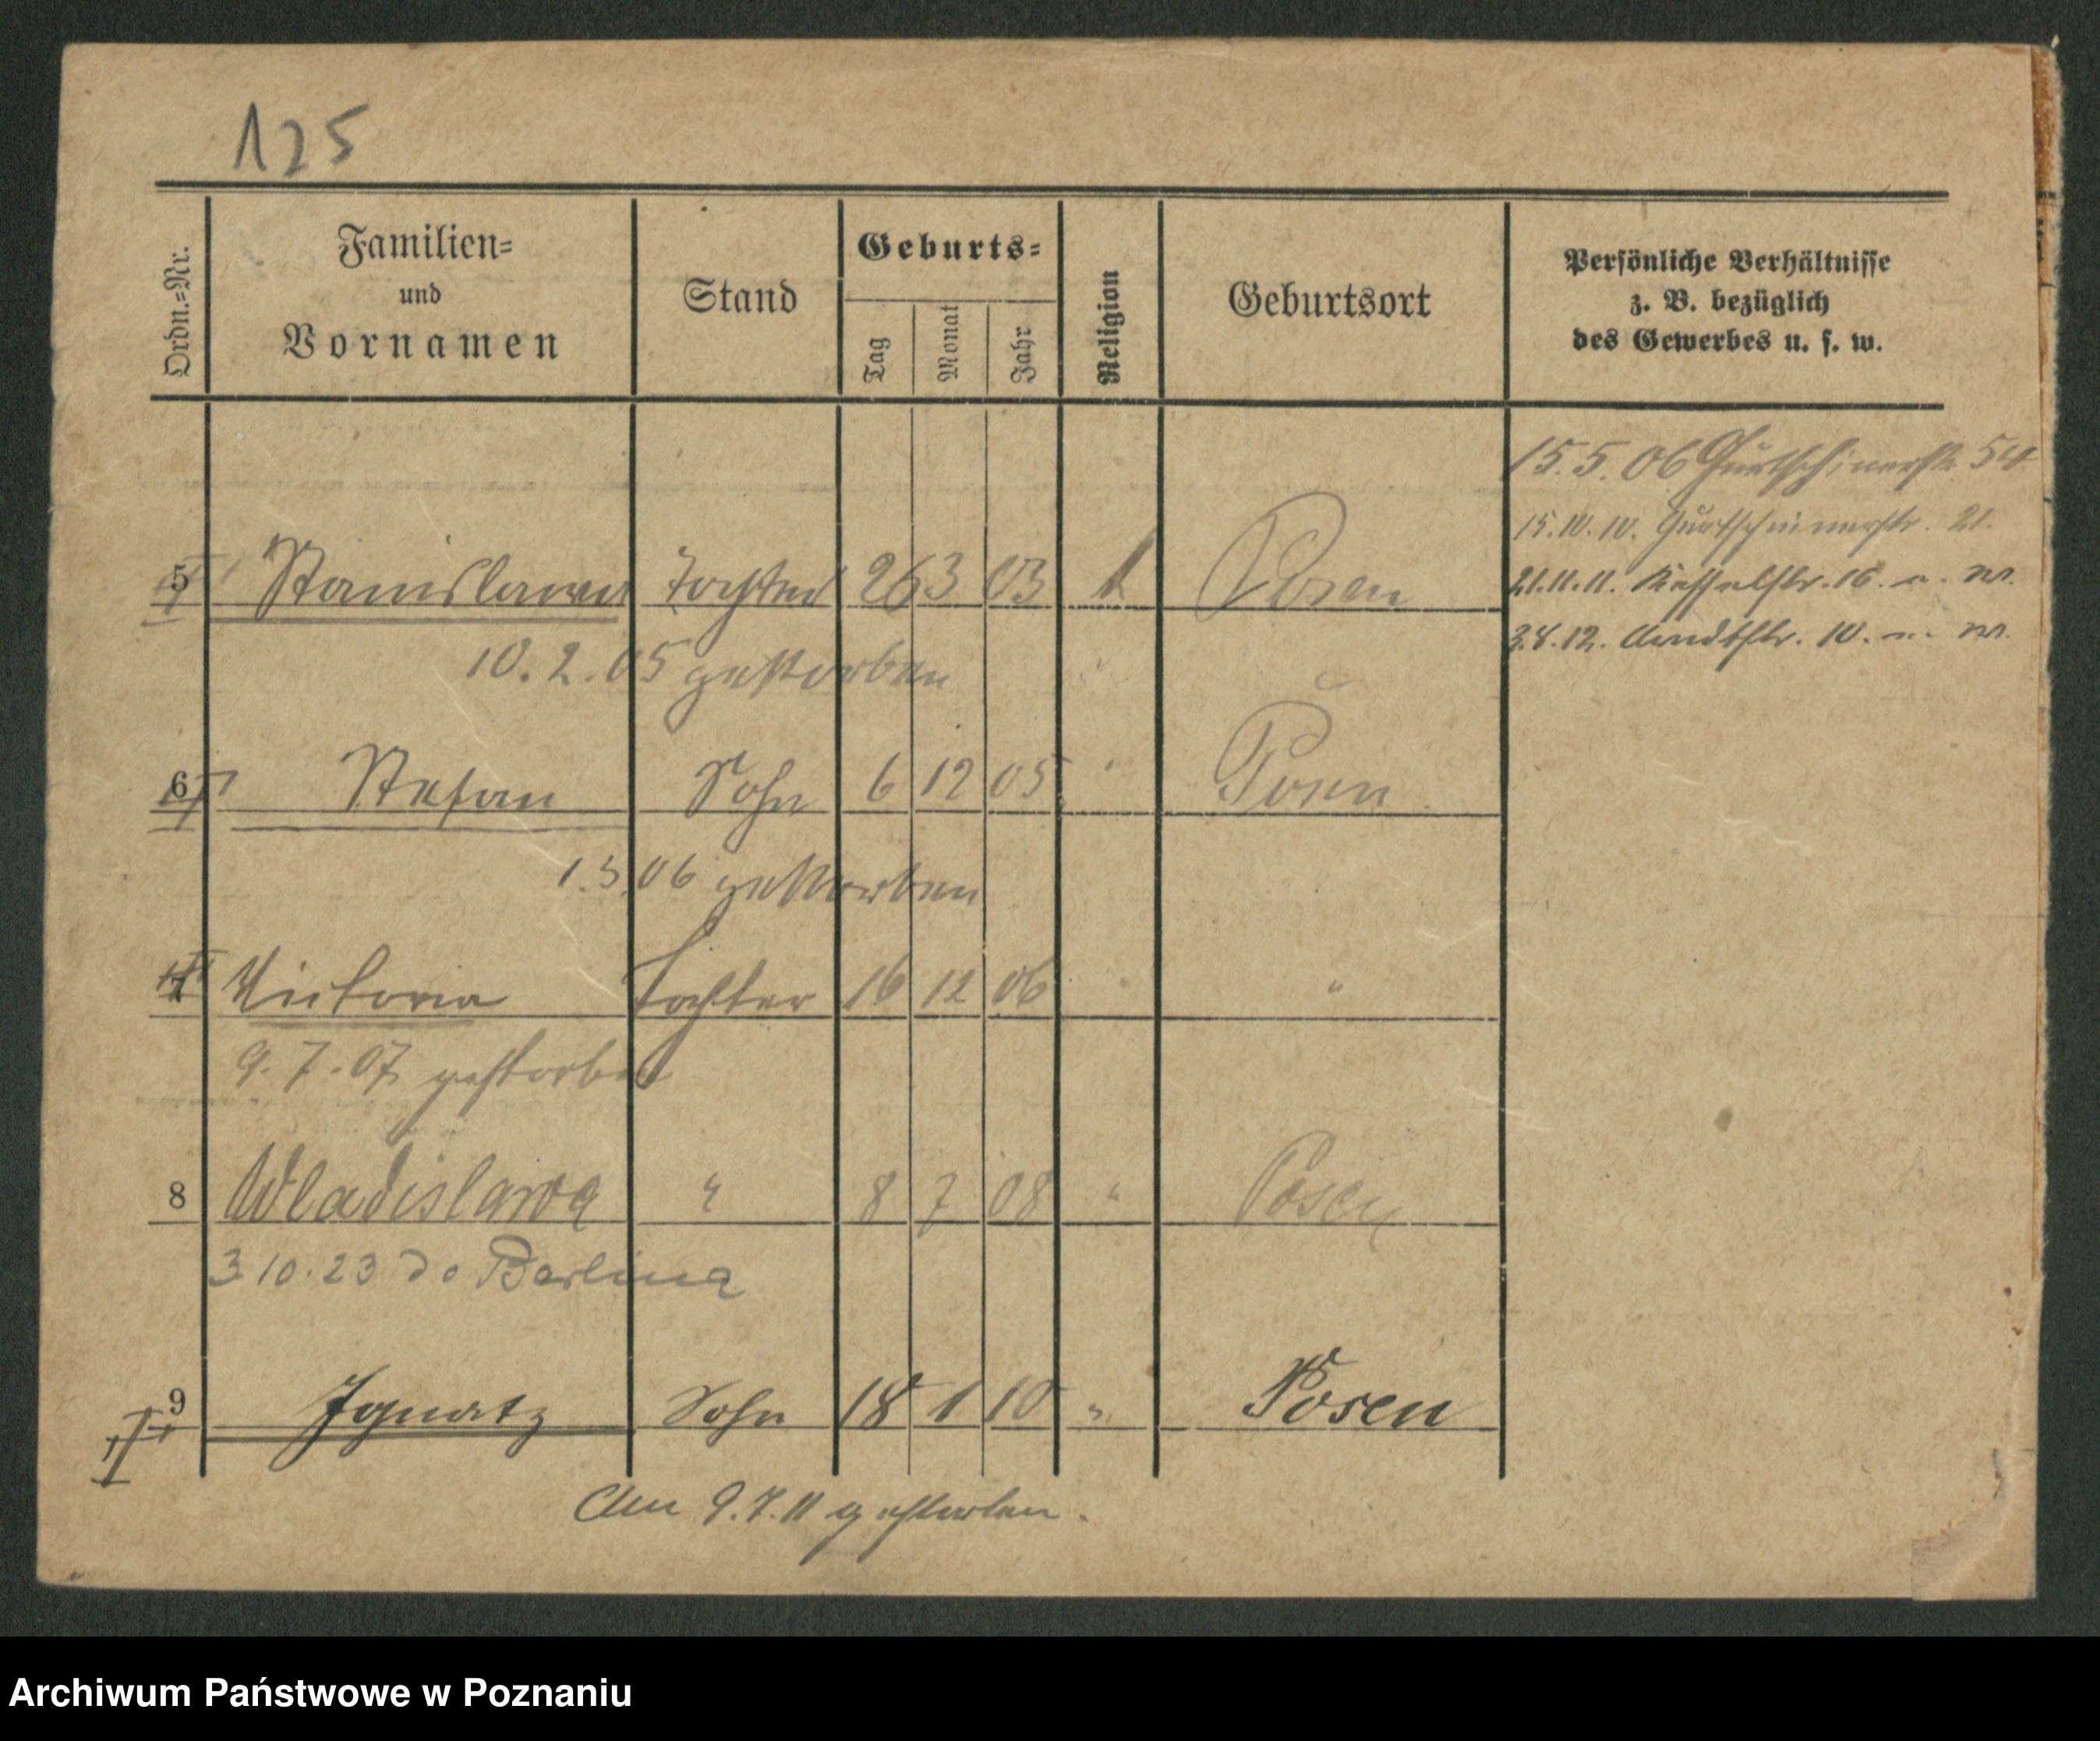 125
Ordn.=Nr. Familien= und Vornamen Stand Geburts= Tag Monat Jahr Religion Geburtsort Persönliche Verhältnisse z. B. bezüglich des Gewerbes u. s. w.
15.5.06 Gurtschinerstr. 54
15.10.10. Gurtschinerstr. 21.
21.11.11. Kesselstr. 16.
5 Stanislawa Tochter 26 3 03 k Posen
2.8.12. Arndtstr. 10.
10.2.05 gestorben
6 Stefan Sohn 6 12 05 " Posen
1.3.06 gestorben
7 Victoria Tochter 16 12 06 " "
9.7.07 gestorben
8 Wladislawa " 8 7 08 " Posen
3 10.23 do Berlina
9 Ignatz Sohn 18 1 10 " Posen
Am 9.7.11 gestorben.
Archiwum Państwowe w Poznaniu